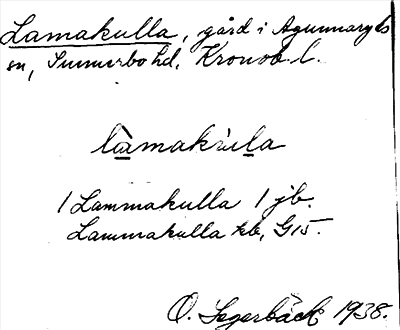 Lamakulla, gård i Agunnaryds
sn, Sunnerbo hd, Kronob. l.
1 Lammakulla 1 jb.
Lammakulla kb, G15.
O. Segerbäck 1938.